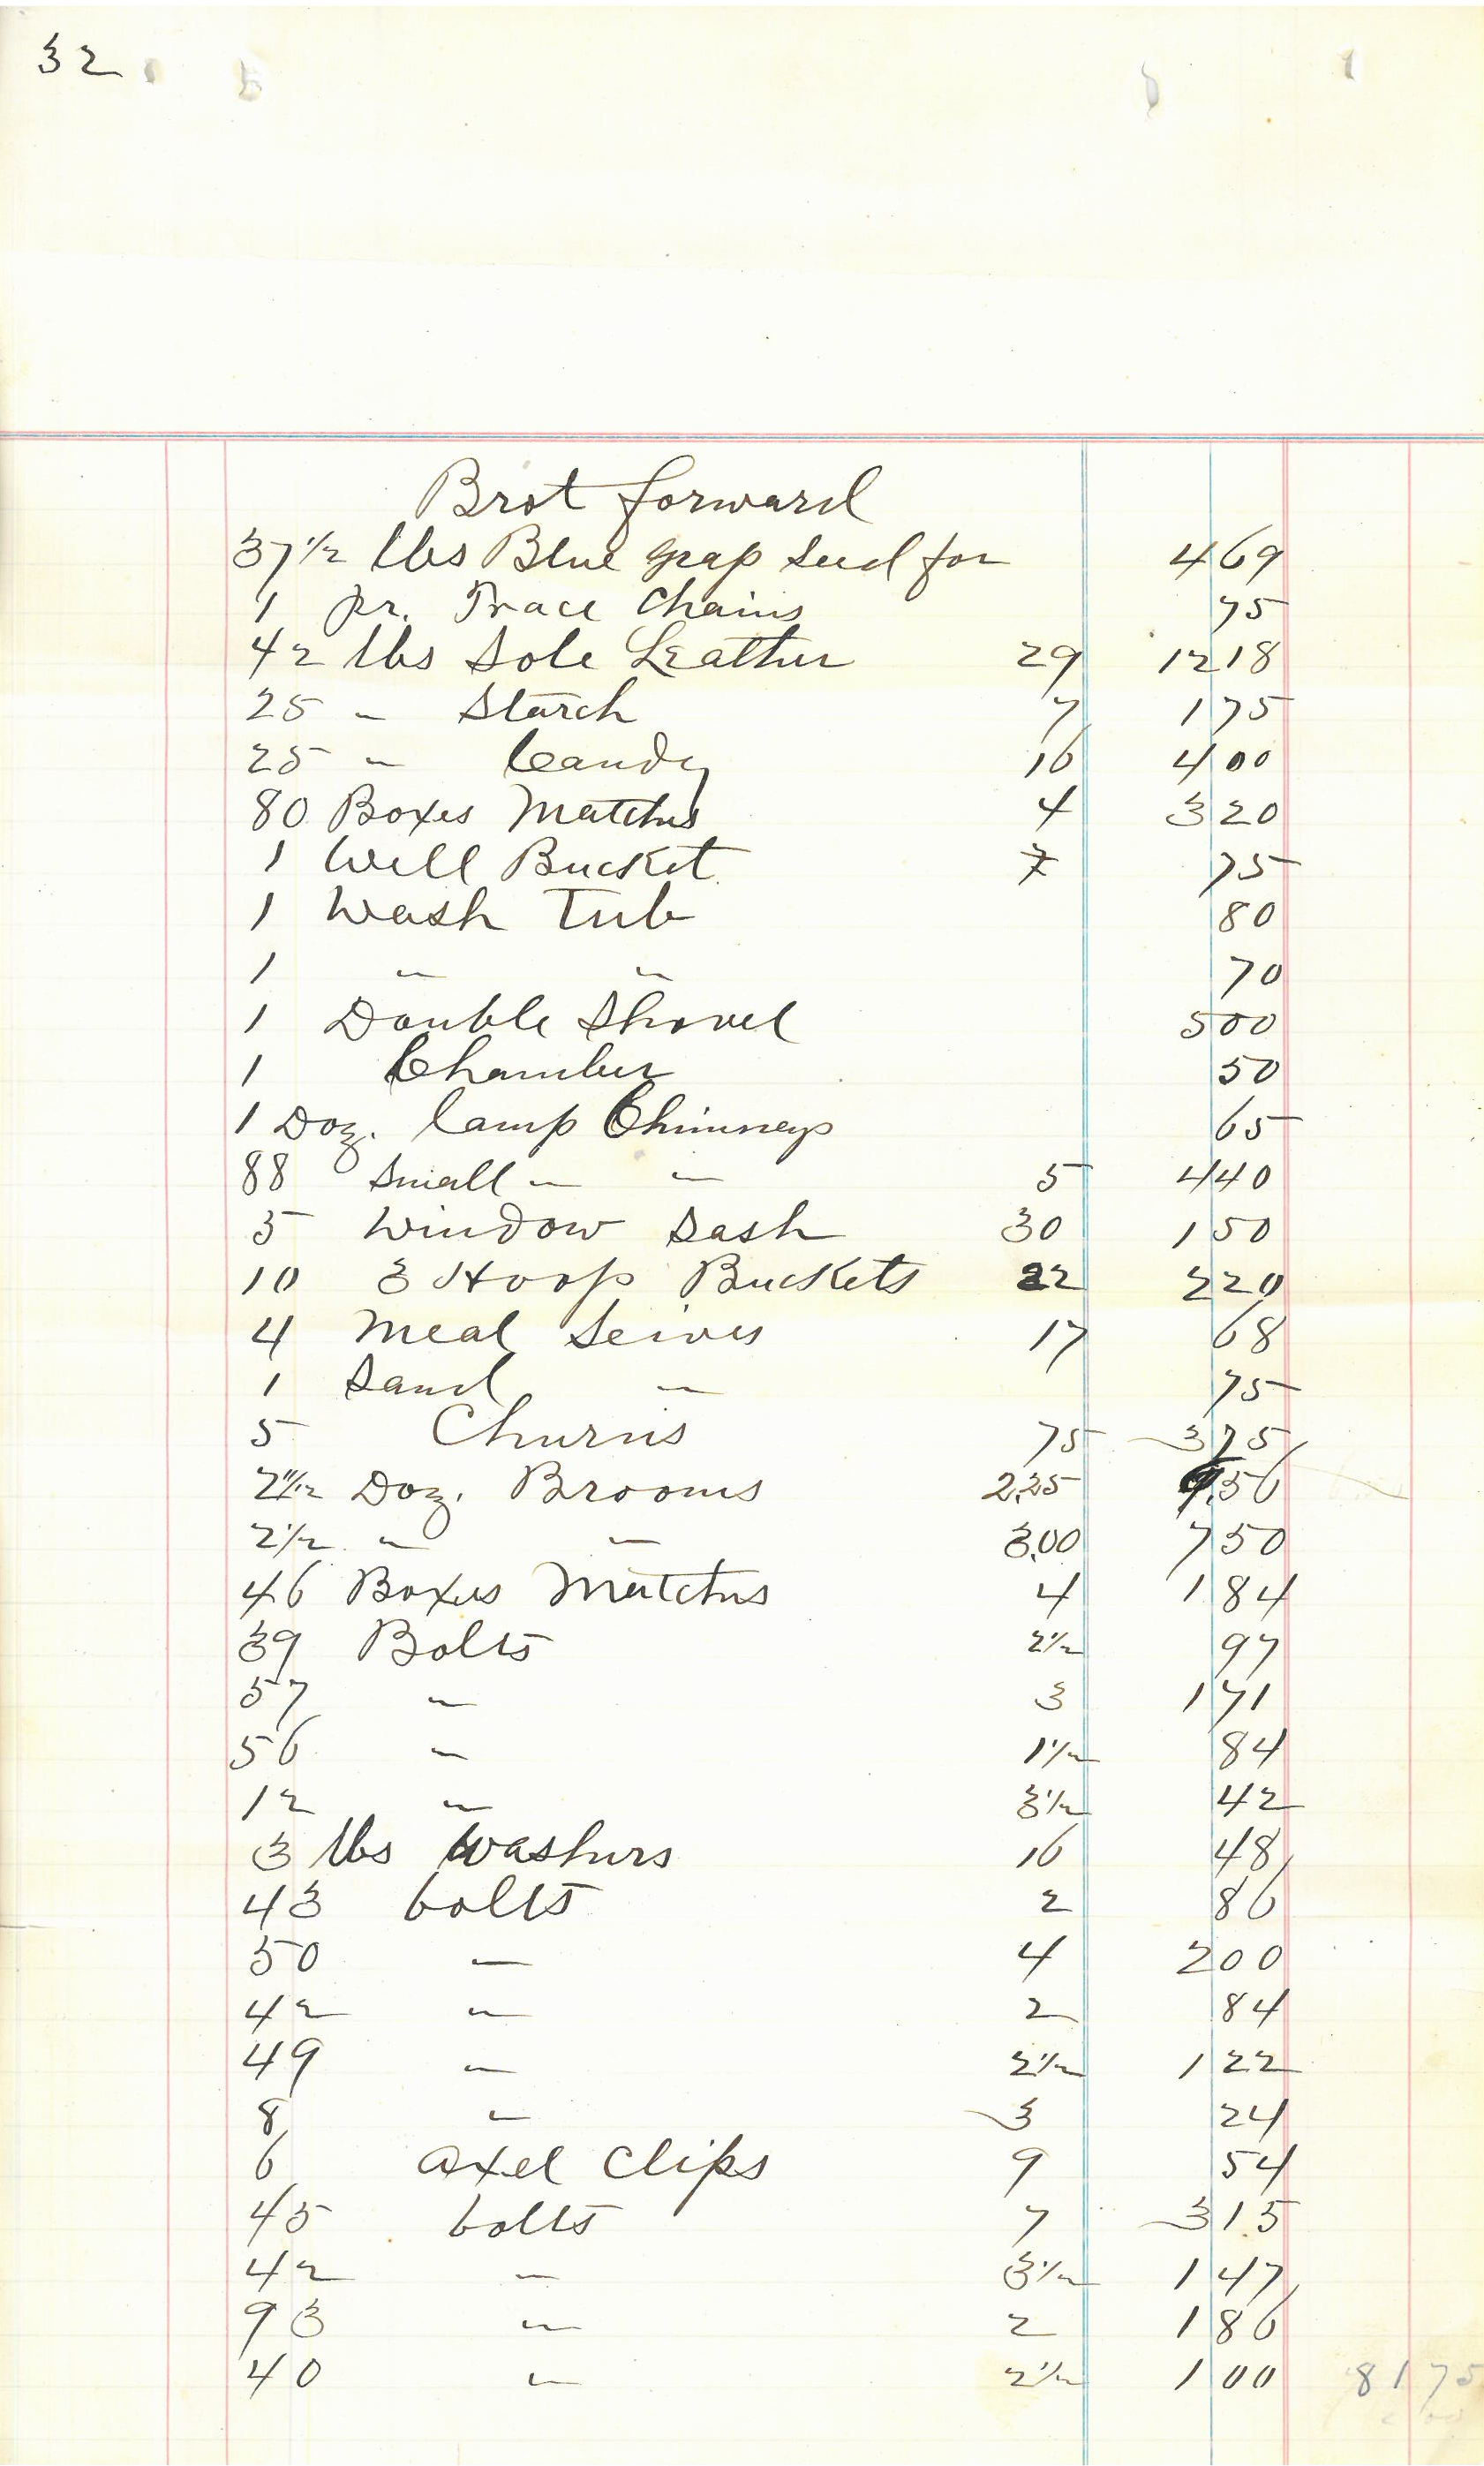 32
Brot forward
37 1/2 lbs Blue grass seed for 4 69
1 pr. Trace Chains 75
42 lbs Sole Leather 29 12 18
25 " Starch 7 1 75
25 " Candy 16 4 00
80 Boxes Matches 4 3 20
1 Well Bucket 75
1 Wash Tub 80
1 " " 70
1 Double Shovel 5 00
1 Chamber 50
1 Doz. Lamp Chimneys 65
88 Small " " 5 4 40
5 Window Sash 30 1 50
10 3 Hoop Buckets 22 2 20
4 Meal Seives 17 68
1 Sand " 75
5 Churns 75 3 75
Doz. Brooms 2.25 .56
2 1/2 " " 3.00 7 50
46 Boxes Matches 4 1 84
39 Bolts 2 1/2 97
57 " 3 1 71
56 " 1 1/2 84
12 " 3 1/2 42
3 lbs Washers 16 48
43 bolts 2 86
50 " 4 2 00
42 " 2 84
49 " 2 1/2 1 22
8 " 3 24
6 axel Clips 9 54
45 bolts 7 3 15
42 " 3 1/2 1 47
93 " 2 1 86
40 " 2 1/2 1 00 81 75